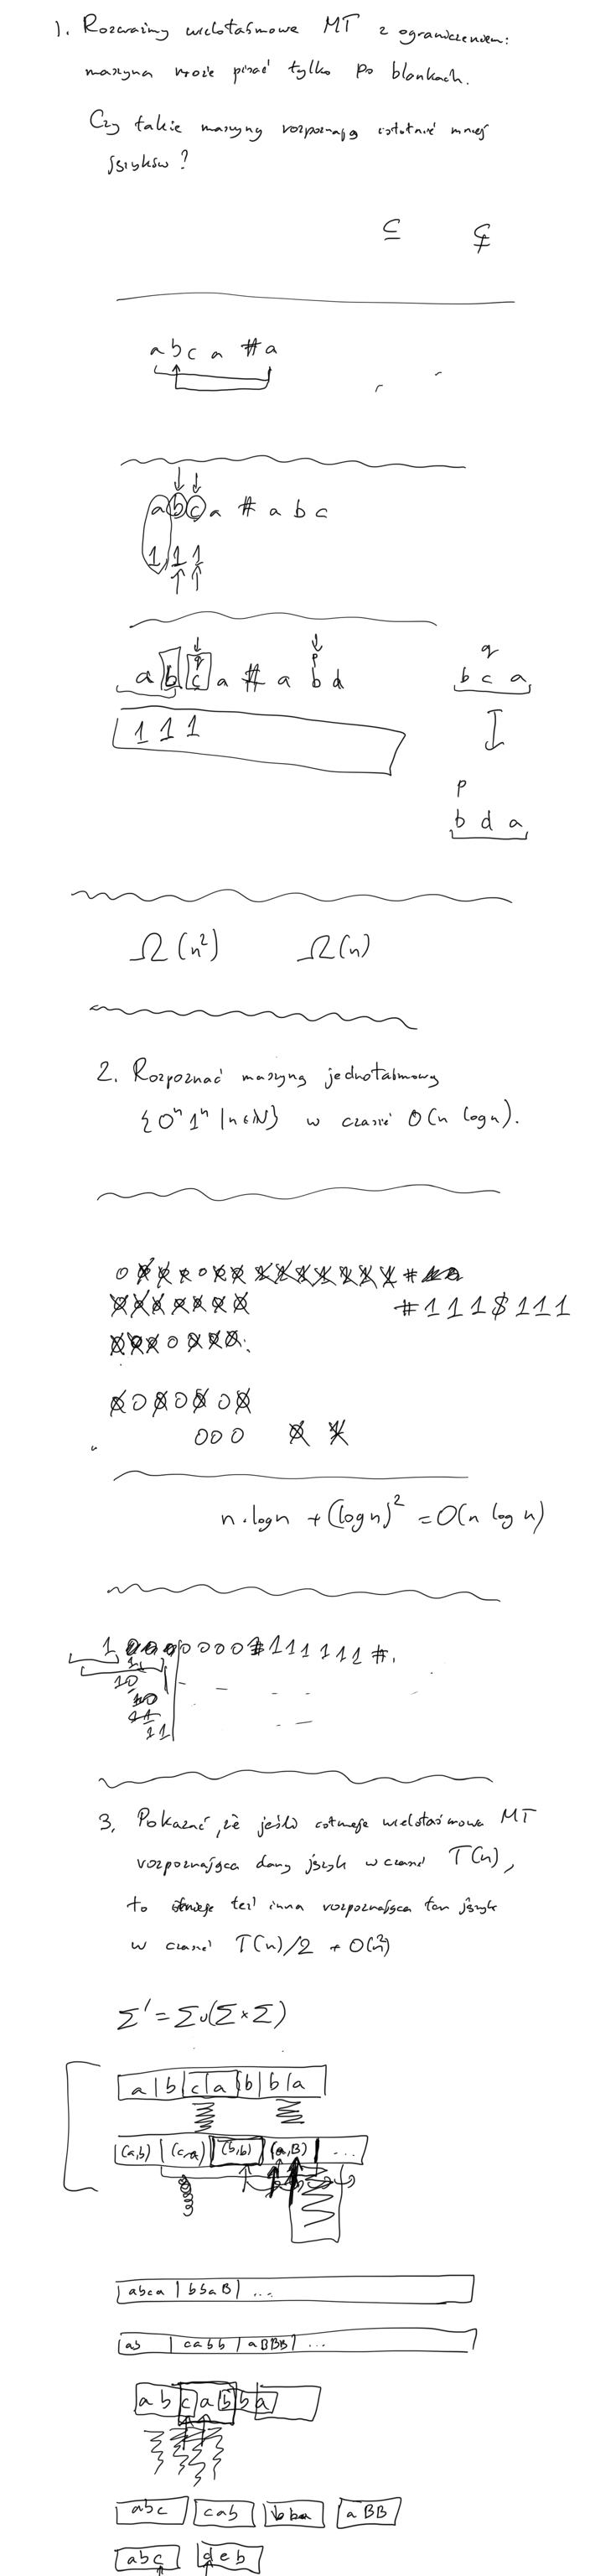 1. Rozważmy wielotaśmowe MT z ograniczeniem:
maszyna może pisać tylko po blankach.
Czy takie maszyny rozpoznają istotnie mniej
języków?
⊆ ⊊
a b c a # a
a b c a # a b c
1 1 1
q p
a b c a # a b d
1 1 1
q
b c a
p
b d a
Ω(n²) Ω(n)
2. Rozpoznać maszyną jednotaśmową
{0ⁿ1ⁿ | n∈N} w czasie O(n log n).
#111$111
000
n·logn + (logn)² = O(n log n)
3. Pokazać, że jeśli istnieje wielotaśmowa MT
rozpoznająca dany język w czasie T(n),
to istnieje też inna rozpoznająca ten język
w czasie T(n)/2 + O(n²)
Σ' = Σ∪(Σ×Σ)
a | b | c | a | b | b | a
(a,b) | (c,a) | (b,b) | (a,B) | ...
abca | bbaB | ...
ab | cabb | aBBB | ...
a b c a b b a
abc cab bba aBB
abc deb